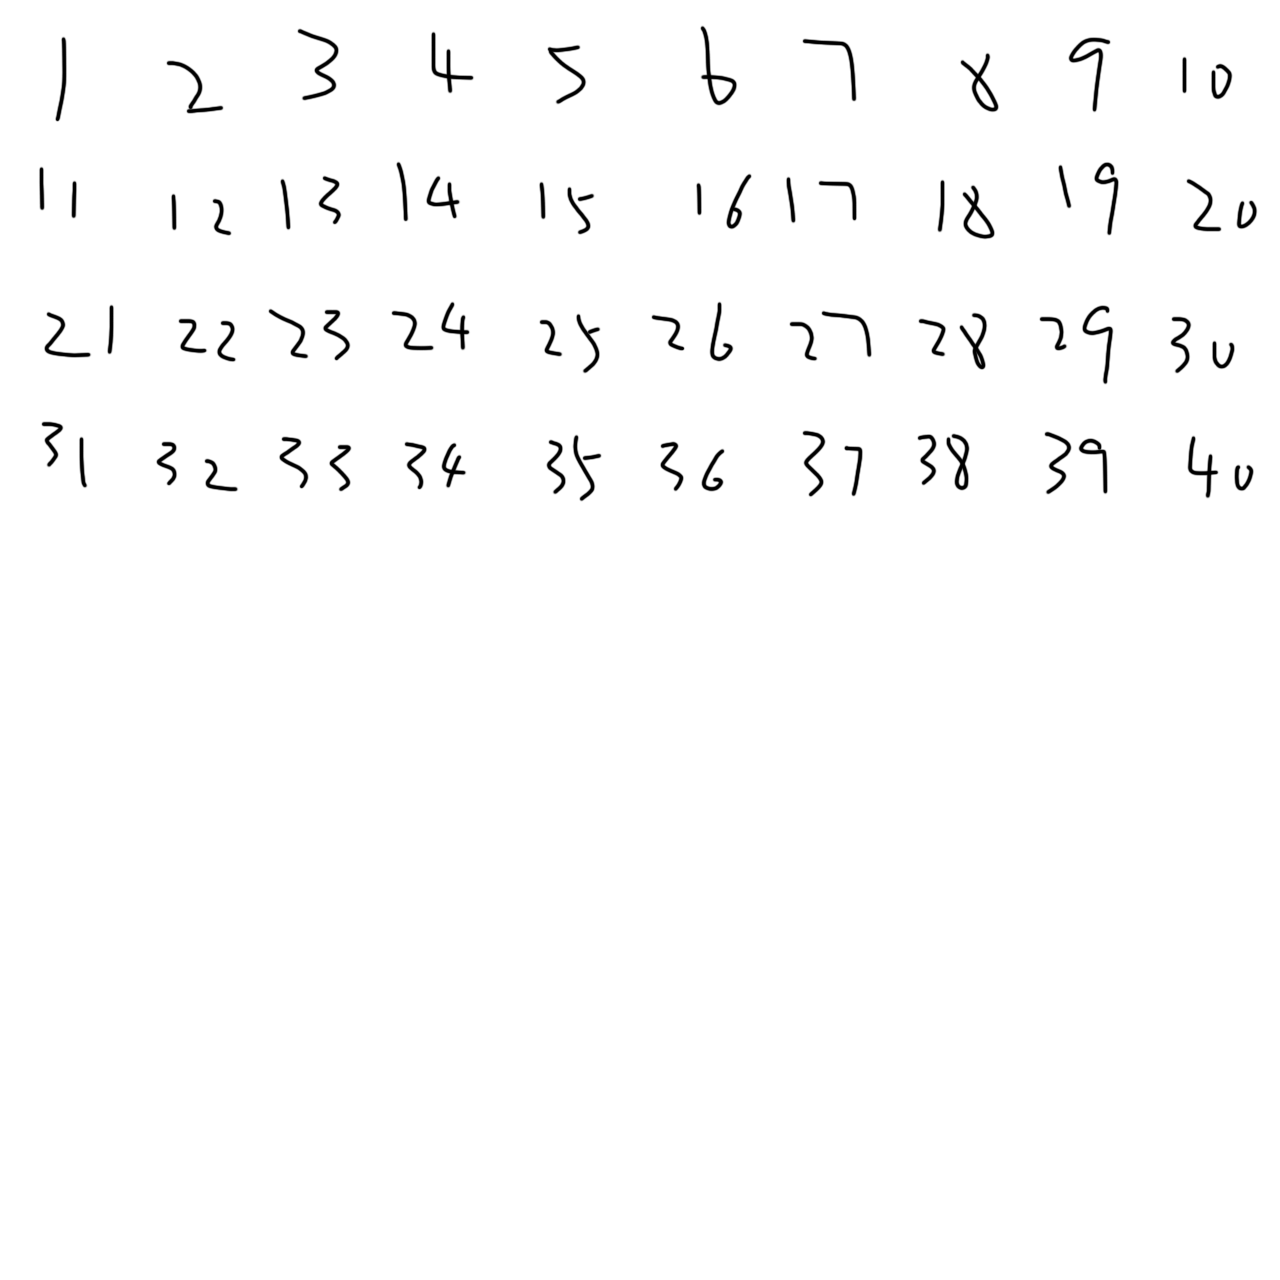 1 2 3 4 5 6 7 8 9 10
11 12 13 14 15 16 17 18 19 20
21 22 23 24 25 26 27 28 29 30
31 32 33 34 35 36 37 38 39 40